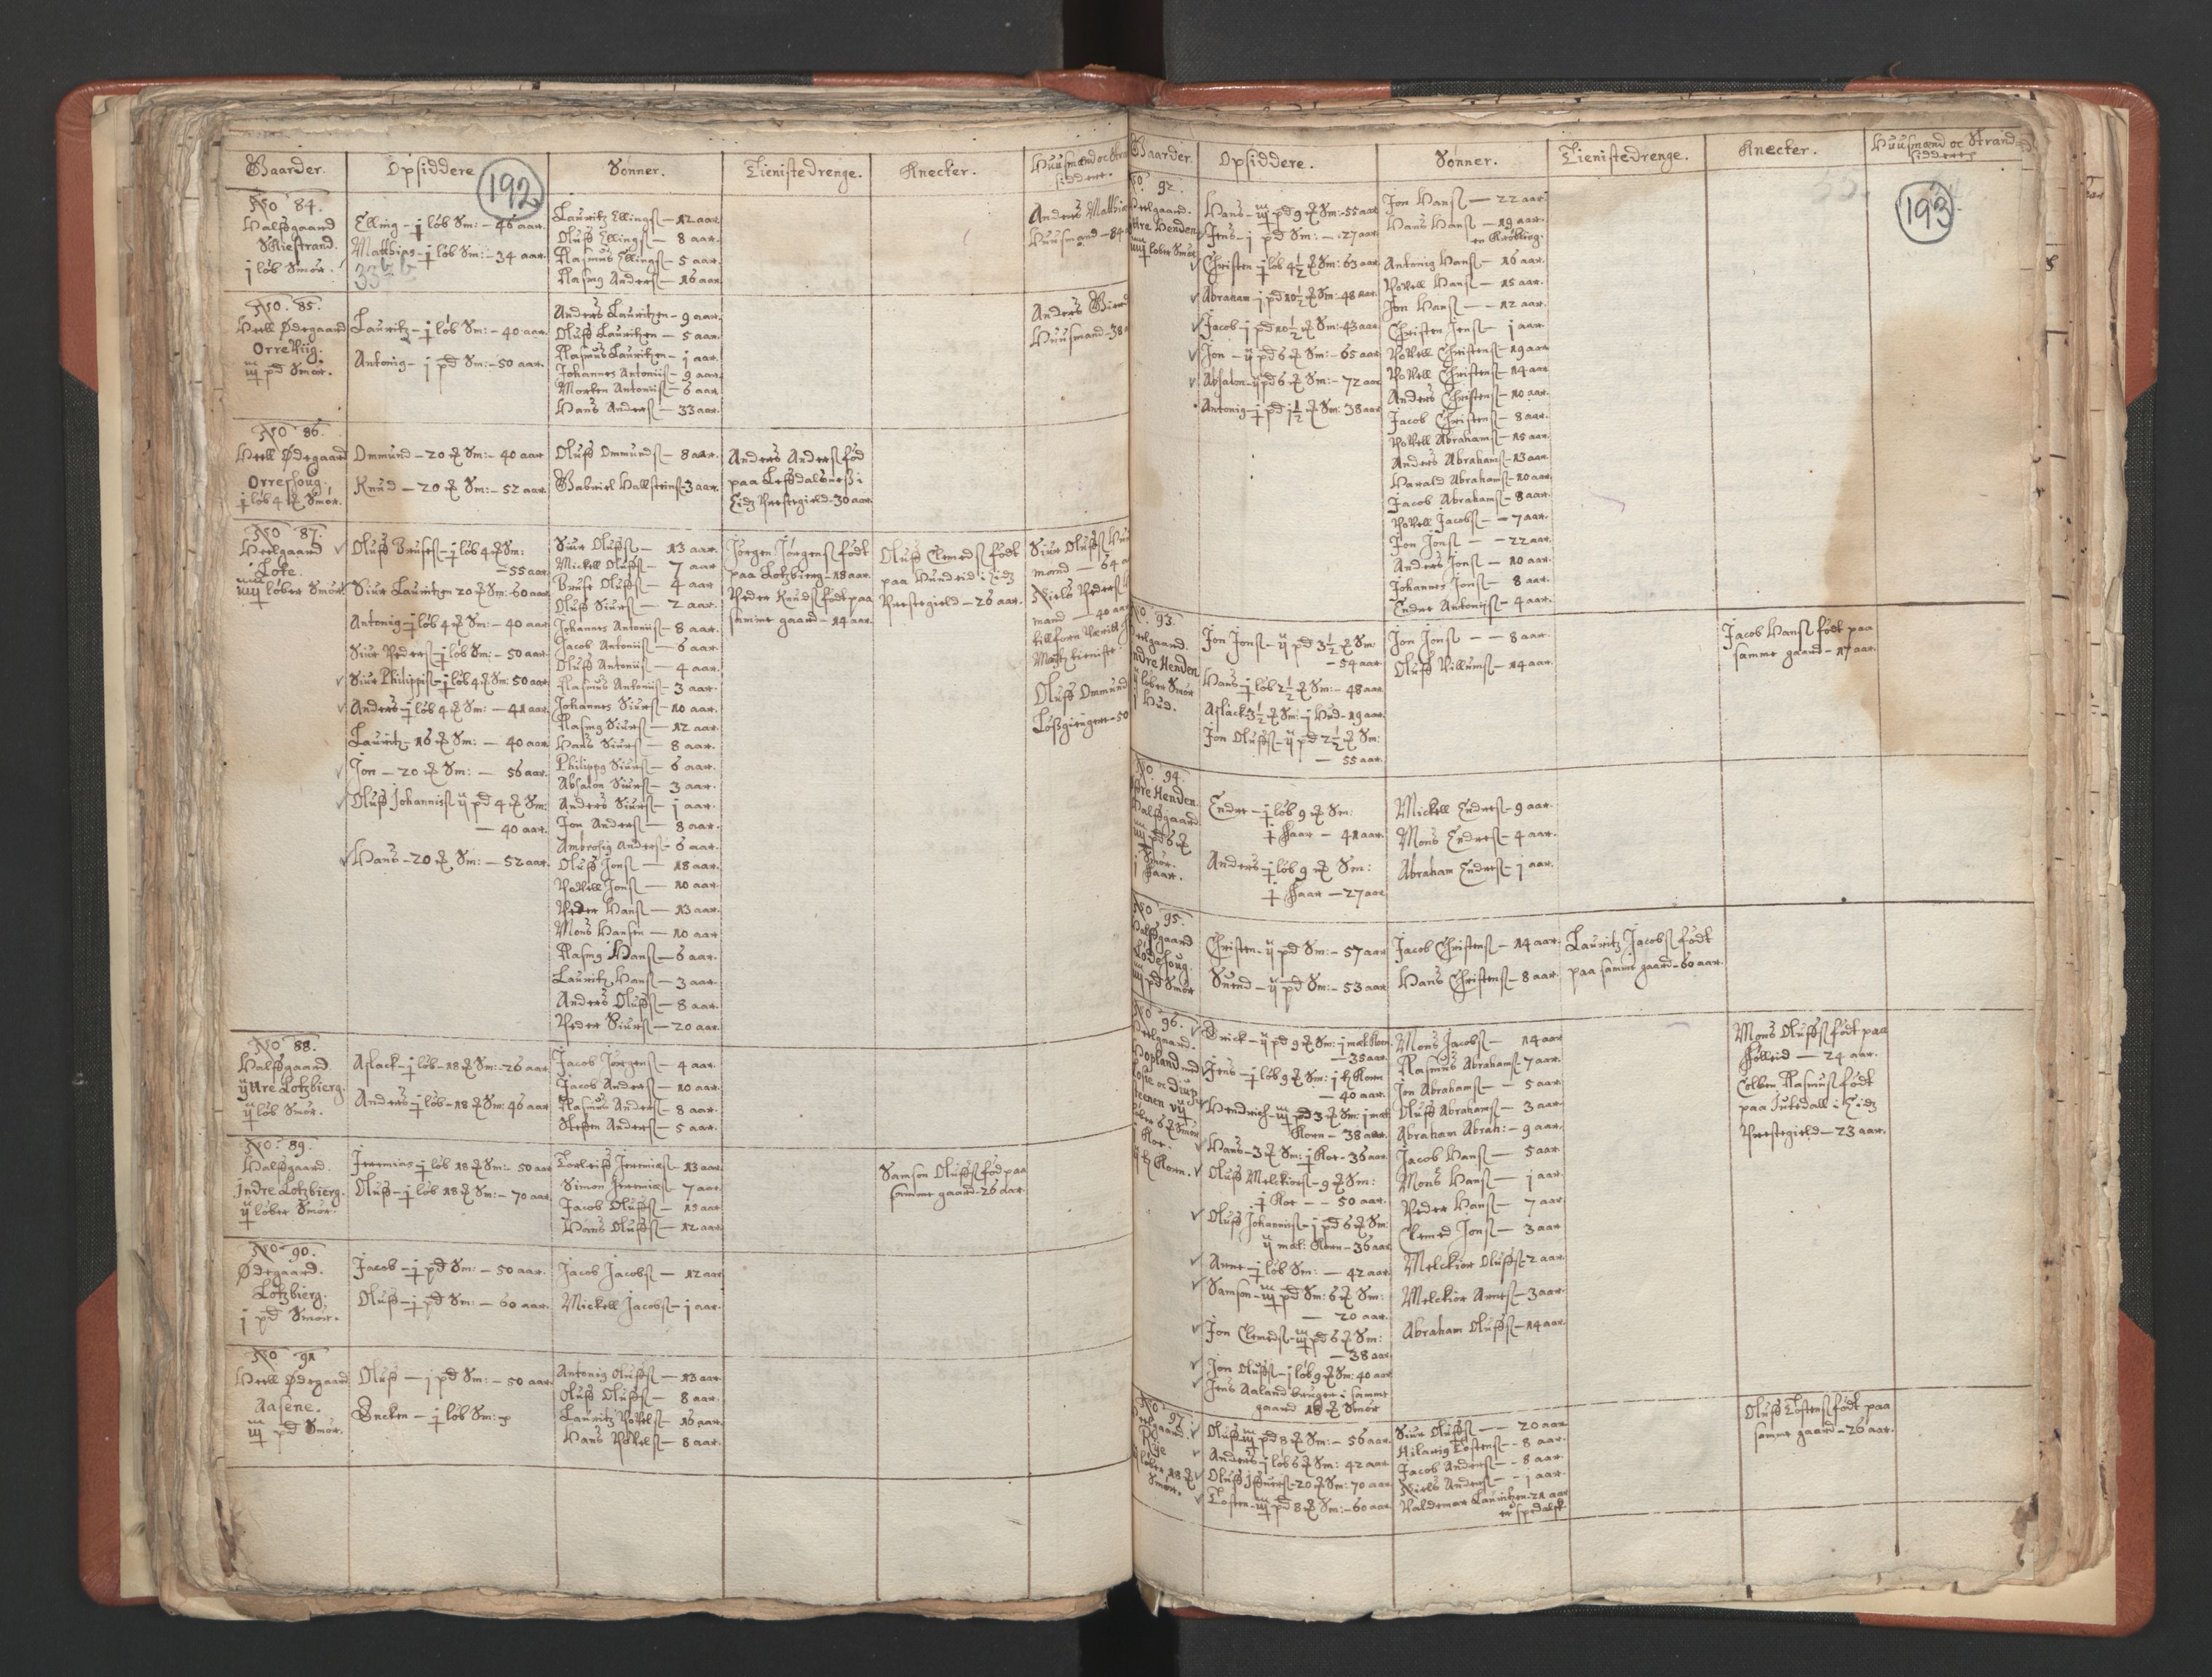 192
Gaarder. Opsiddere Sønner. Tienistedrenge. Knecter. Huusmænd oc Strandsiddere.
No 84.
Halfgaard
Skiestrand.
j løb Smør.
Elling - j løb Sm: - 46 aar.
Matthias - j løb Sm: - 34 aar.
Lauritz Ellings - 12 aar
Oluff Ellings - 8 aar.
Rasmus Ellings - 5 aar.
Rasmg Anders - 16 aar
Anders Matthias
Huusmand - 84
No. 85.
Heell Ødegaard
Orreviig.
iij pd Smør.
Lauritz - j løb Sm: - 40 aar.
Antonig - j pd Sm: - 50 aar.
Anders Lauritzen - 9 aar.
Oluff Lauritzen - 5 aar.
Rasmus Lauritzen - j aar.
Johannes Antoniis - 9 aar.
Morten Antoniis - 6 aar
Hans Anders - 33 aar.
Anders
Huusmand - 38
No 86.
Heell Ødegaard
Orreshoug.
j løb 4 Smør.
Ommund - 20 Sm: - 40 aar
Knud - 20 Sm: - 52 aar.
Oluff Ommunds - 8 aar.
Gabriel Hallsteins - 3 aar.
Anders Anders fød
paa Lefsdalsnes i
Eidz Prestegield - 30 aar.
No 87.
Heelgaard
Lote.
løber Smør.
Oluff Bruses - j løb 4 Sm:
- 55 aar
Siur Lauritzen 20 Sm: 60 aar
Antonig - j løb 4 Sm: - 40 aar
Siur Peders - j løb Sm: - 50 aar.
Siur Philippis - j løb 4 Sm: 50 aar
Anders - j løb 4 Sm: - 41 aar.
Lauritz - 16 Sm: - 40 aar
Jon - 20 Sm: - 56 aar.
Oluff Johannis ij pd 4 Sm:
- 40 aar.
Hans - 20 Sm: - 52 aar.
Siur Oluffs - 13 aar.
Mickell Oluffs - 7 aar
Bruse Oluffs - 4 aar
Oluff Siurs - 2 aar.
Johannes Antoniis - 8 aar.
Jacob Antoniis - 6 aar.
Oluff Antoniis - 4 aar.
Rasmus Antoniis - 3 aar.
Johannes Siurs - 10 aar.
Rasmg Siurs - 12 aar.
Hans Siurs - 8 aar.
Philippg Siurs - 6 aar.
Absalon Siurs - 3 aar.
Anders Siurs - j aar.
Jon Anders - 8 aar.
Ambrosig Anders - 6 aar.
Oluff Jons - 18 aar.
Povell Jons - 10 aar.
Peder Hans - 13 aar.
Mons Hansen - 10 aar
Rasmg Hans - 6 aar.
Lauritz Hans - 3 aar.
Anders Oluffs - 8 aar.
Peder Siurs - 20 aar.
Jørgen Jørgens født
paa Lotzbierg - 18 aar.
Peder Knuds født paa
samme gaard - 14 aar.
Oluff Clemeds født
paa Hundeid i Eidz
Prestegield - 26 aar.
Siur Oluffs
mand - 64
Niels Peders
mand - 40 aar
tilforn
tieniste
Oluff Ommund
Løsgienger - 50
No 88.
Halfgaard.
yttre Lotzbierg.
ij løb Smør.
Aslack - j løb - 18 Sm: - 26 aar.
Anders - j løb - 18 Sm: 46 aar
Jacob Jørgens - 4 aar.
Jacob Anders - 10 aar.
Rasmus Anders - 8 aar.
Steffen Anders - 5 aar.
No: 89.
Halfgaard.
Jndre Lotzbierg.
ij løber Smør.
Jeremias - j løb 18 Sm: - 50 aar
Oluff - j løb 18 Sm: - 70 aar.
Torleiff Jeremias - 13 aar.
Simon Jeremias - 7 aar.
Jacob Oluffs - 15 aar
Hans Oluffs - 12 aar
Samson Oluffs fød paa
samme gaard - 26 aar.
No 90.
Ødegaard.
Lotzbierg.
j pd Smør.
Jacob - j pd Sm: - 50 aar.
Oluff - j pd Sm: - 60 aar.
Jacob Jacobs - 12 aar
Mickell Jacobs - j aar.
No 91
Heell Ødegaard
Aasene.
iij pd Smør.
Oluff - j pd Sm: - 50 aar.
Encken - j løb Sm:
Antonig Oluffs - 13 aar.
Oluff Oluffs - 8 aar.
Lauritz Povels - 16 aar.
Hans Povels - 8 aar.
193
Gaarder. Opsiddere. Sønner. Tienistedrenge. Knecter. Huusmænd oc Strandsiddere
No. 92.
Heelgaard.
Yttre Henden
løber Smør
Hans - iij pd 9 Sm: - 55 aar
Jens - j pd Sm: - 27 aar.
Christen - j løb 4½ Sm: 63 aar
Abraham - j pd 10½ Sm: - 48 aar.
Jacob - j pd 10½ Sm: - 43 aar.
Jon - ij pd 6 Sm: - 65 aar
Absalon - ij pd 6 Sm: - 72 aar
Antonig - j pd j½ Sm: 38 aar
Jon Hans - 22 aar
Hans Hans - 19 aar.
en Krøbling.
Antonig Hans - 16 aar.
Povell Hans - 15 aar.
Jon Hans - 12 aar.
Christen Jens - j aar.
Povell Christens - 19 aar.
Povell Christens - 14 aar
Anders Christens - 10 aar.
Jacob Christens - 8 aar.
Povell Abrahams - 15 aar.
Anders Abrahams - 13 aar.
Harald Abrahams - 10 aar.
Jacob Abrahams - 8 aar.
Povell Jacobs - 7 aar.
Jon Jons - 22 aar.
Anders Jons - 10 aar.
Johannes Jons - 8 aar.
Endre Antoniis - 4 aar.
No. 93.
Heelgaard.
Indre Henden
løber Smør
j Hud.
Jon Jons - ij pd 3½ Sm
- 54 aar
Hans - j løb 2½ Sm: - 48 aar
Aslack 3½ Sm: - j Hud - 19 aar.
Jon Oluffs - ij pd 2½ Sm:
- 55 aar.
Jon Jons - 8 aar.
Oluff Villums - 14 aar.
Jacob Hans født paa
samme gaard - 17 aar.
No. 94.
Indre Henden.
Halfgaard
pd 6
Smør.
j Faar.
Endre - j løb 9 Sm:
Faar - 41 aar.
Anders - j løb 9 Sm:
Faar - 27 aar
Mickell Endres - 9 aar.
Mons Endres - 4 aar.
Abraham Endres - j aar.
No 95.
Halfgaard
Lødeshoug.
pd Smør
Christen - ij pd Sm: - 57 aar
Suend - ij pd Sm: - 53 aar
Jacob Christens - 14 aar.
Hans Christens - 8 aar.
Lauritz Jacobs født
paa samme gaard - 60 aar.
No 96.
Heelgaard.
Hopland med
løber 6 Smør
Korn.
Erick - ij pd 9 Sm: j mæl: Korn.
- 35 aar.
Jens - j løb 9 Sm: j Korn
- 40 aar.
Hendrich - iij pd 3 Sm: j mæl
Korn - 38 aar.
Hans - 3 Sm: j Koe - 36 aar.
Oluff Melckiors - 9 Sm:
j Koe - 50 aar.
Oluff Johannis - j pd 6 Sm:
ij mæl: Korn - 36 aar
Arne - j løb Sm: - 42 aar.
Samson - iij pd Sm: 6 Sm:
- 20 aar.
Jon Clemeds - iij pd 6 Sm:
- 38 aar
Jon Oluffs - j løb 9 Sm: 40 aar
Jens Aaland bruger i samme
gaard 18 Smør
Mons Jacobs - 14 aar
Rasmus Abrahams - 7 aar.
Jon Abrahams - 5 aar.
Oluff Abrahams - 3 aar.
Abraham Abrah: - 9 aar.
Jacob Hans - 5 aar.
Mons Hans - j aar.
Peder Hans - 7 aar
Clemed Jons - 3 aar
Melckior Oluffs - 2 aar.
Melckior Arnes - 3 aar.
Abraham Oluffs - 14 aar.
Mons Oluffs født paa
Folleid - 24 aar.
Colben Rasmus født
paa i Eidz
Prestegield - 23 aar.
No 97.
Heelgaard.
Rye
løber 18
Smør.
Oluff iij pd 8 Sm: - 56 aar.
Anders j løb 6 Sm: 42 aar
Oluff Jffuers - 20 Sm: 70 aar
Tosten - iij pd 8 Sm: - 60 aar.
Siur Oluffs - 20 aar
Hilarig Tostens - 8 aar.
Jacob Anders - 8 aar.
Niels Anders - j aar.
Valdemar Lauritzen - 21 aar
er spedalsk
Oluff Tostens født paa
samme gaard - 26 aar.